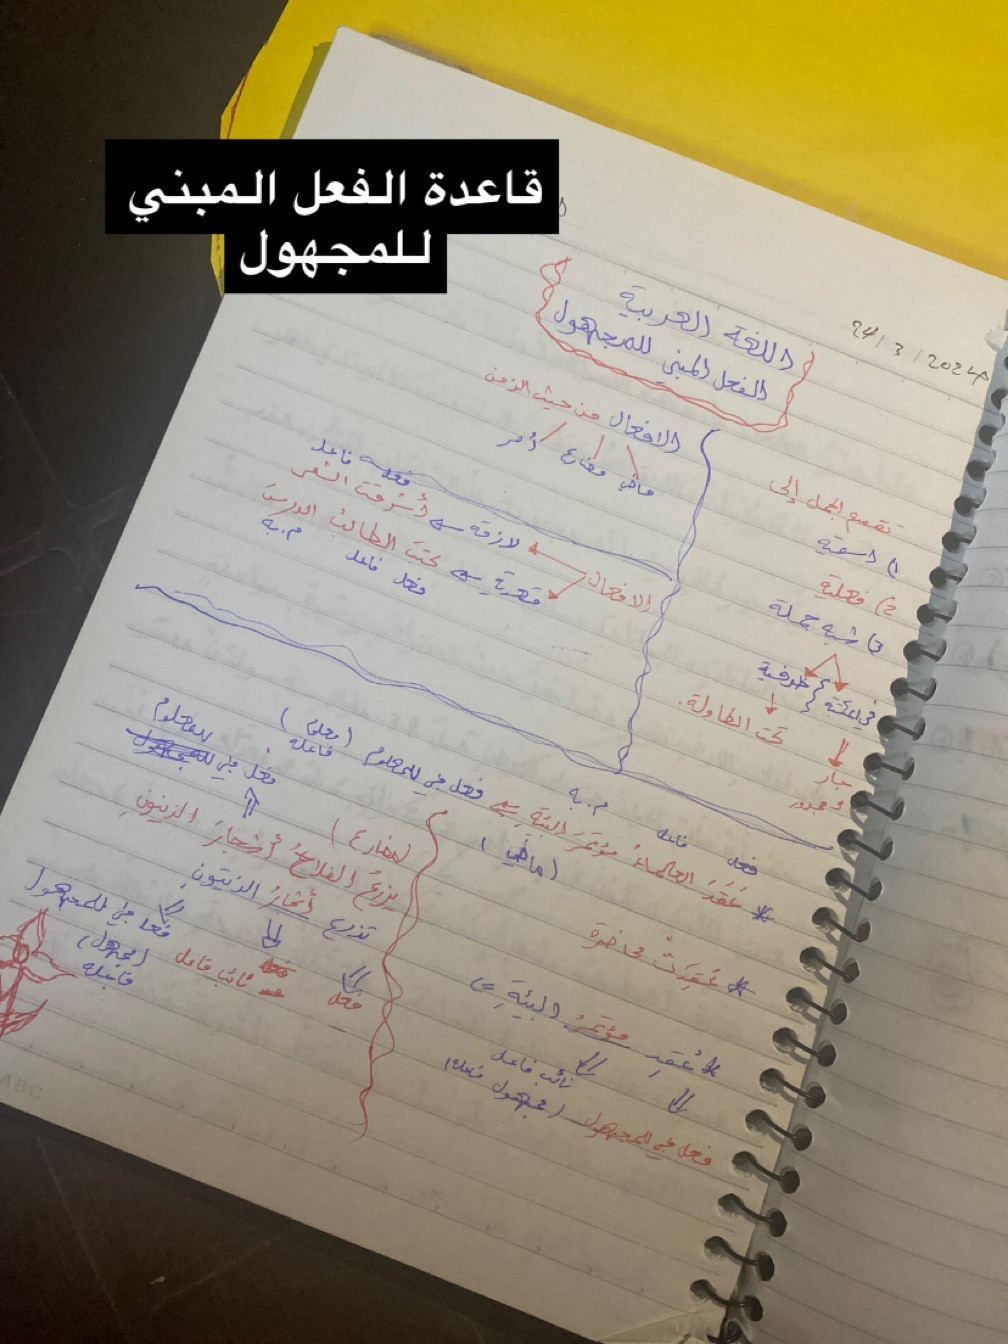 قاعدة الفعل المبني
للمجهول
24/3/2024
اللغة العربية
الفعل المبني للمجهول
تقسم الجمل إلى
1) اسمية
2) فعلية
3) شبه جملة
ظرفية
في المكتبة
تحت الطاولة.
جار
و مجرور
الافعال من حيث الزمن
ماضي مضارع أمر
فعل فاعل
الافعال
لازمة أشرقت الشمس
متعدية كتبَ الطالبُ الدرسَ
فعل فاعل م.به
فعل فاعل م.به
* عَقَدَ العلماءُ مؤتمرَ البيئةِ فعل مبني للمعلوم (معلوم فاعله)
(ماضي)
* عُقِدَتْ محاضرة
* عُقِدَ مؤتمرُ البيئةِ
نائب فاعل
فعل مبني للمجهول (مجهول فاعله)
(مضارع)
فعل مبني للمعلوم
يزرعُ الفلاحُ أشجارَ الزيتونِ
تزرع أشجارُ الزيتونِ
فعل نائب فاعل
فعل مبني للمجهول
(مجهول)
فاعله